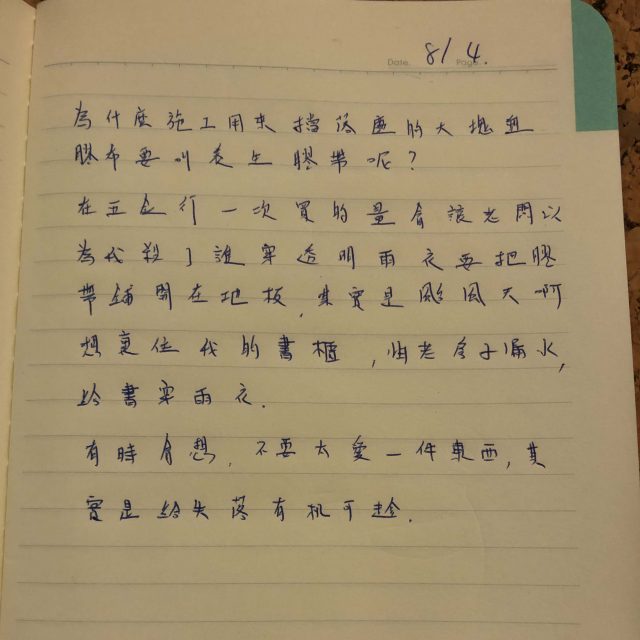 Date. 8/4. Page.
為什麼施工用來擋落塵的大塊塑
膠布要叫養生膠帶呢？
在五金行一次買的量會讓老闆以
為我殺了誰穿透明雨衣要把膠
帶鋪開在地板，其實是颱風天啊
想裹住我的書櫃，怕老房子漏水，
給書穿雨衣．
有時會想，不要太愛一件東西，其
實是給失落有机可趁．